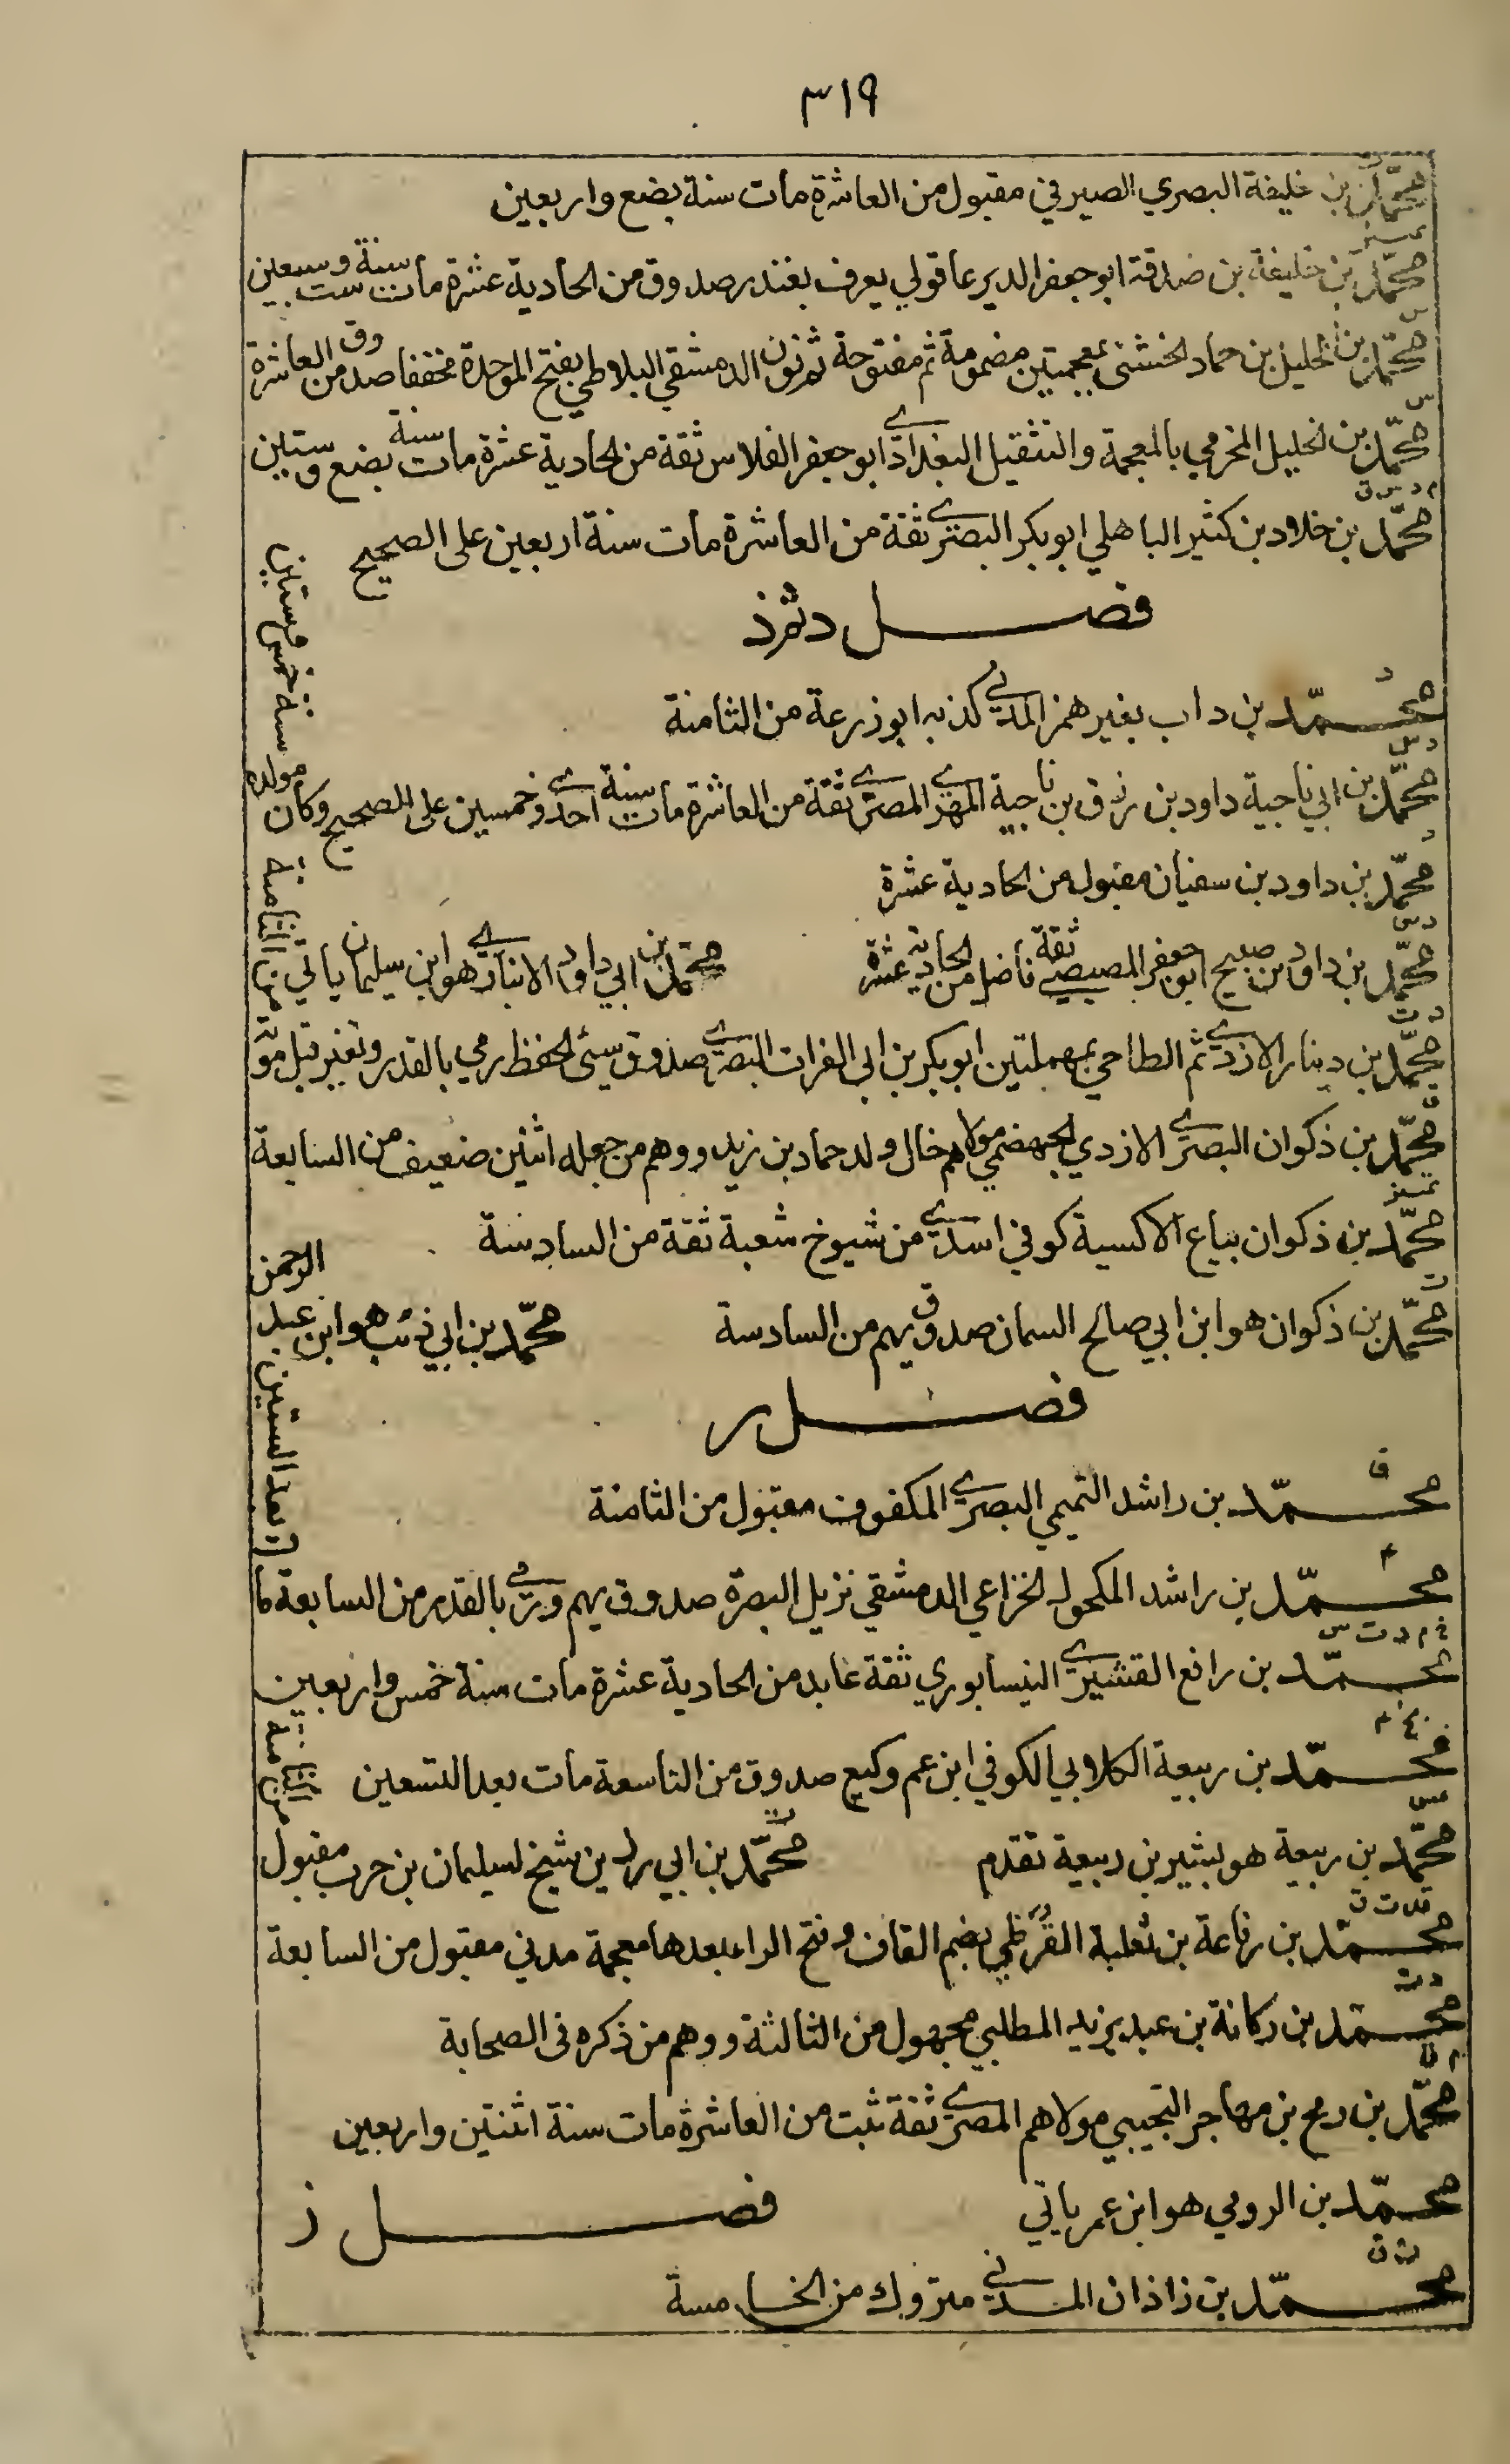 ٣١٩
ق
محمد بن خليفة البصري الصيرفي مقبول من العاشرة مات سنة بضع واربعين
تمييز
محمد بن خليفة بن صدقة ابو جعفر الدير عاقولي يعرف بغندر صدوق من الحادية عشرة مات سنة ست وسبعين
س
محمد بن الخليل بن حماد الخشني بمعجمتين مضمومة ثم مفتوحة ثم نون الدمشقي البلاطي بفتح الموحدة مخففا صدوق من العاشرة
س
محمد بن الخليل المخرمي بالمعجمة والتثقيل البغدادي ابو جعفر الفلاس ثقة من الحادية عشرة مات سنة بضع وستين
م د س ق
محمد بن خلاد بن كثير الباهلي ابو بكر البصري ثقة من العاشرة مات سنة اربعين على الصحيح
فصل د ذ
د
محمد بن داب بغير همز المدني كذبه ابو زرعة من الثامنة
د س
محمد بن ابي ناجية داود بن رزق بن ناجية المهري المصري ثقة من العاشرة مات سنة احدى وخمسين على الصحيح وكان مولده
سنة خمس وستين
د
محمد بن داود بن سفيان مقبول من الحادية عشرة
د س
محمد بن داود بن صبيح ابو جعفر المصيصي ثقة فاضل من الحادية عشرة محمد بن ابي داود الانباري هو ابن سليمان ياتي
د ت
محمد بن دينار الازدي ثم الطاحي بمهملتين ابو بكر بن ابي الفرات البصري صدوق سيئ الحفظ رمي بالقدر وتغير قبل موته
من الثامنة
ق
محمد بن ذكوان البصري الازدي الجهضمي مولاهم خال ولد حماد بن زيد ووهم من جعله اثنين ضعيف من السابعة
تمييز
محمد بن ذكوان بياع الاكسية كوفي اسدي من شيوخ شعبة ثقة من السادسة
ت
محمد بن ذكوان هو ابن ابي صالح السمان صدوق يهم من السادسة محمد بن ابي ذئب هو ابن عبد الرحمن
فصل ر
ق
محمد بن راشد التميمي البصري المكفوف مقبول من الثامنة
٤
محمد بن راشد المكحول الخزاعي الدمشقي نزيل البصرة صدوق يهم ورمي بالقدر من السابعة ما
ت بعد الستين
خ م د ت س
محمد بن رافع القشيري النيسابوري ثقة عابد من الحادية عشرة مات سنة خمس واربعين
محمد بن ربيعة الكلابي الكوفي ابن عم وكيع صدوق من التاسعة مات بعد التسعين
عس
محمد بن ربيعة هو بشير بن ربيعة تقدم محمد بن ابي رزين شيخ لسليمان بن حرب مقبول
من الثامنة
محمد بن رفاعة بن ثعلبة القرظي بضم القاف وفتح الراء بعدها معجمة مدني مقبول من السابعة
د ت
محمد بن ركانة بن عبد يزيد المطلبي مجهول من الثالثة ووهم من ذكره في الصحابة
م ق
محمد بن رمح بن مهاجر التجيبي مولاهم المصري ثقة ثبت من العاشرة مات سنة اثنتين واربعين
محمد بن الرومي هو ابن عمر ياتي فصل ز
ت ق
محمد بن زاذان المدني متروك من الخامسة